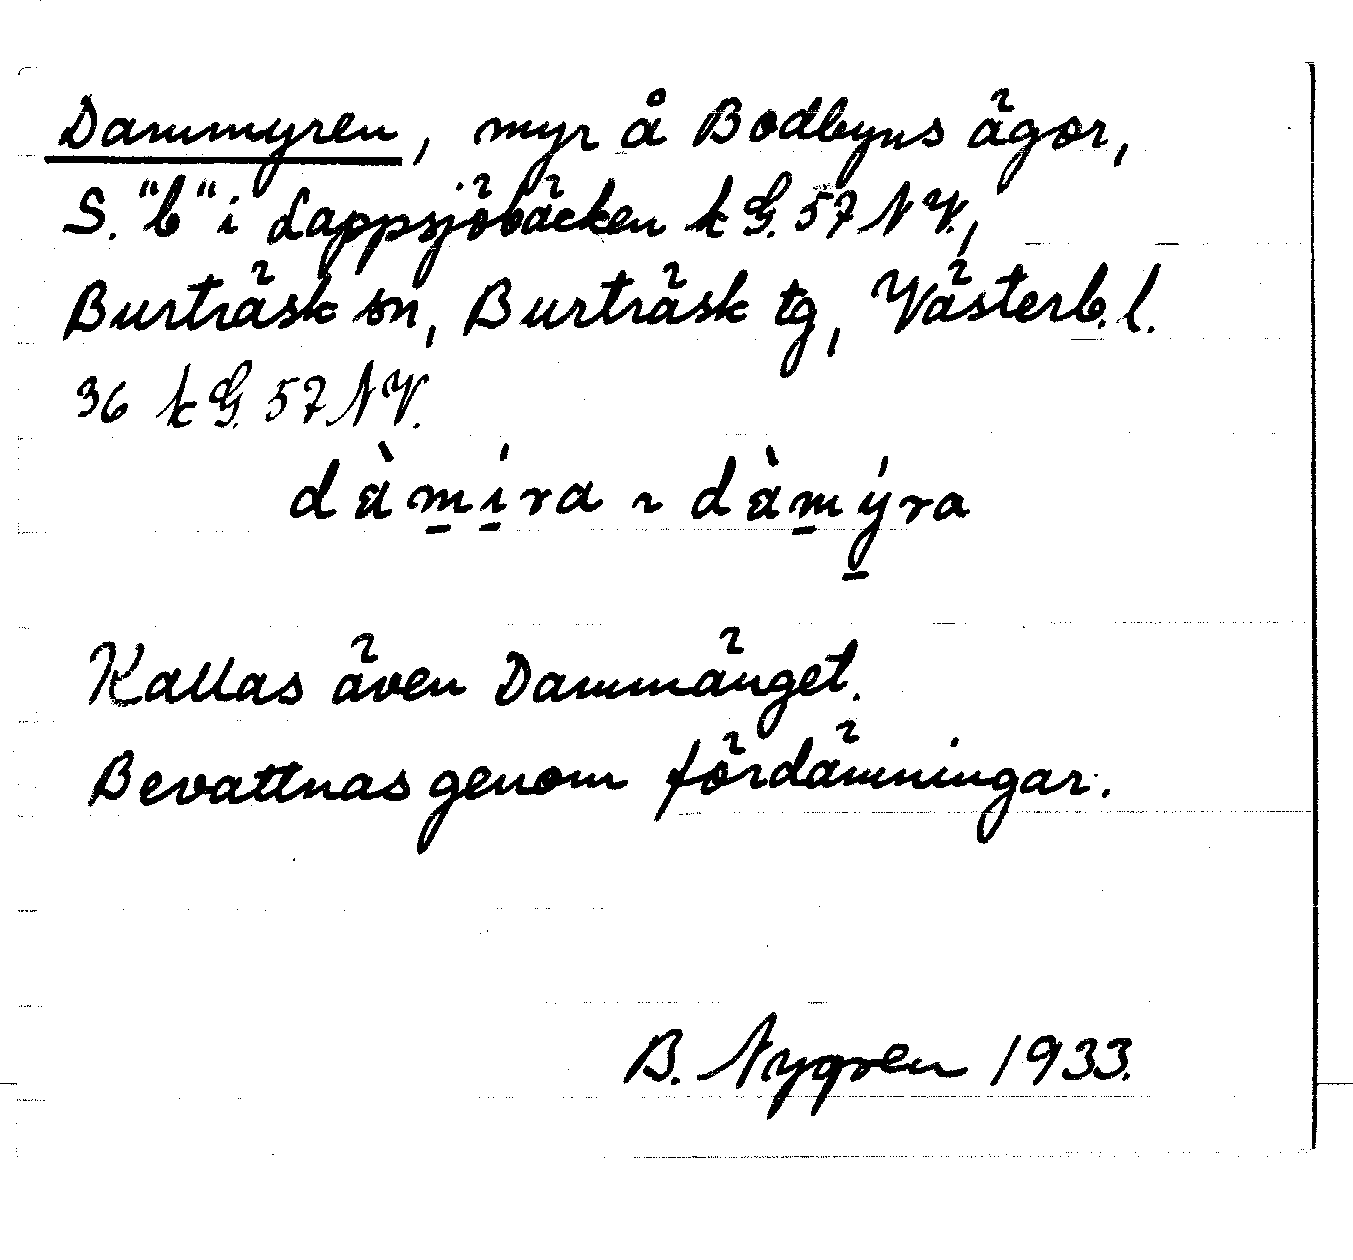 Dammyren, myr å Bodbyns ägor,
S. "b" i Lappsjöbäcken k G. 57 N V.,
Burträsk sn, Burträsk tg, Västerb. l.
36 k G. 57 N V.
dàmíra ~ dàmýra
Kallas även Dammänget.
Bevattnas genom fördämningar.
B. Nygren 1933.